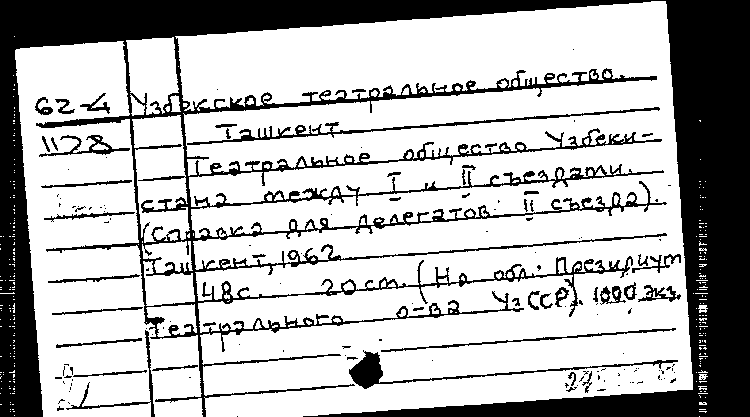 62-4 Узбекское театральное общество.
1178 Ташкент.
Театральное общество Узбеки-
стана между I и II съездами.
(Справка для делегатов II съезда).
Ташкент, 1962
48с. 20 cm. (На обл.: Президиум
Театрального о-ва УзССР). 1000 экз.